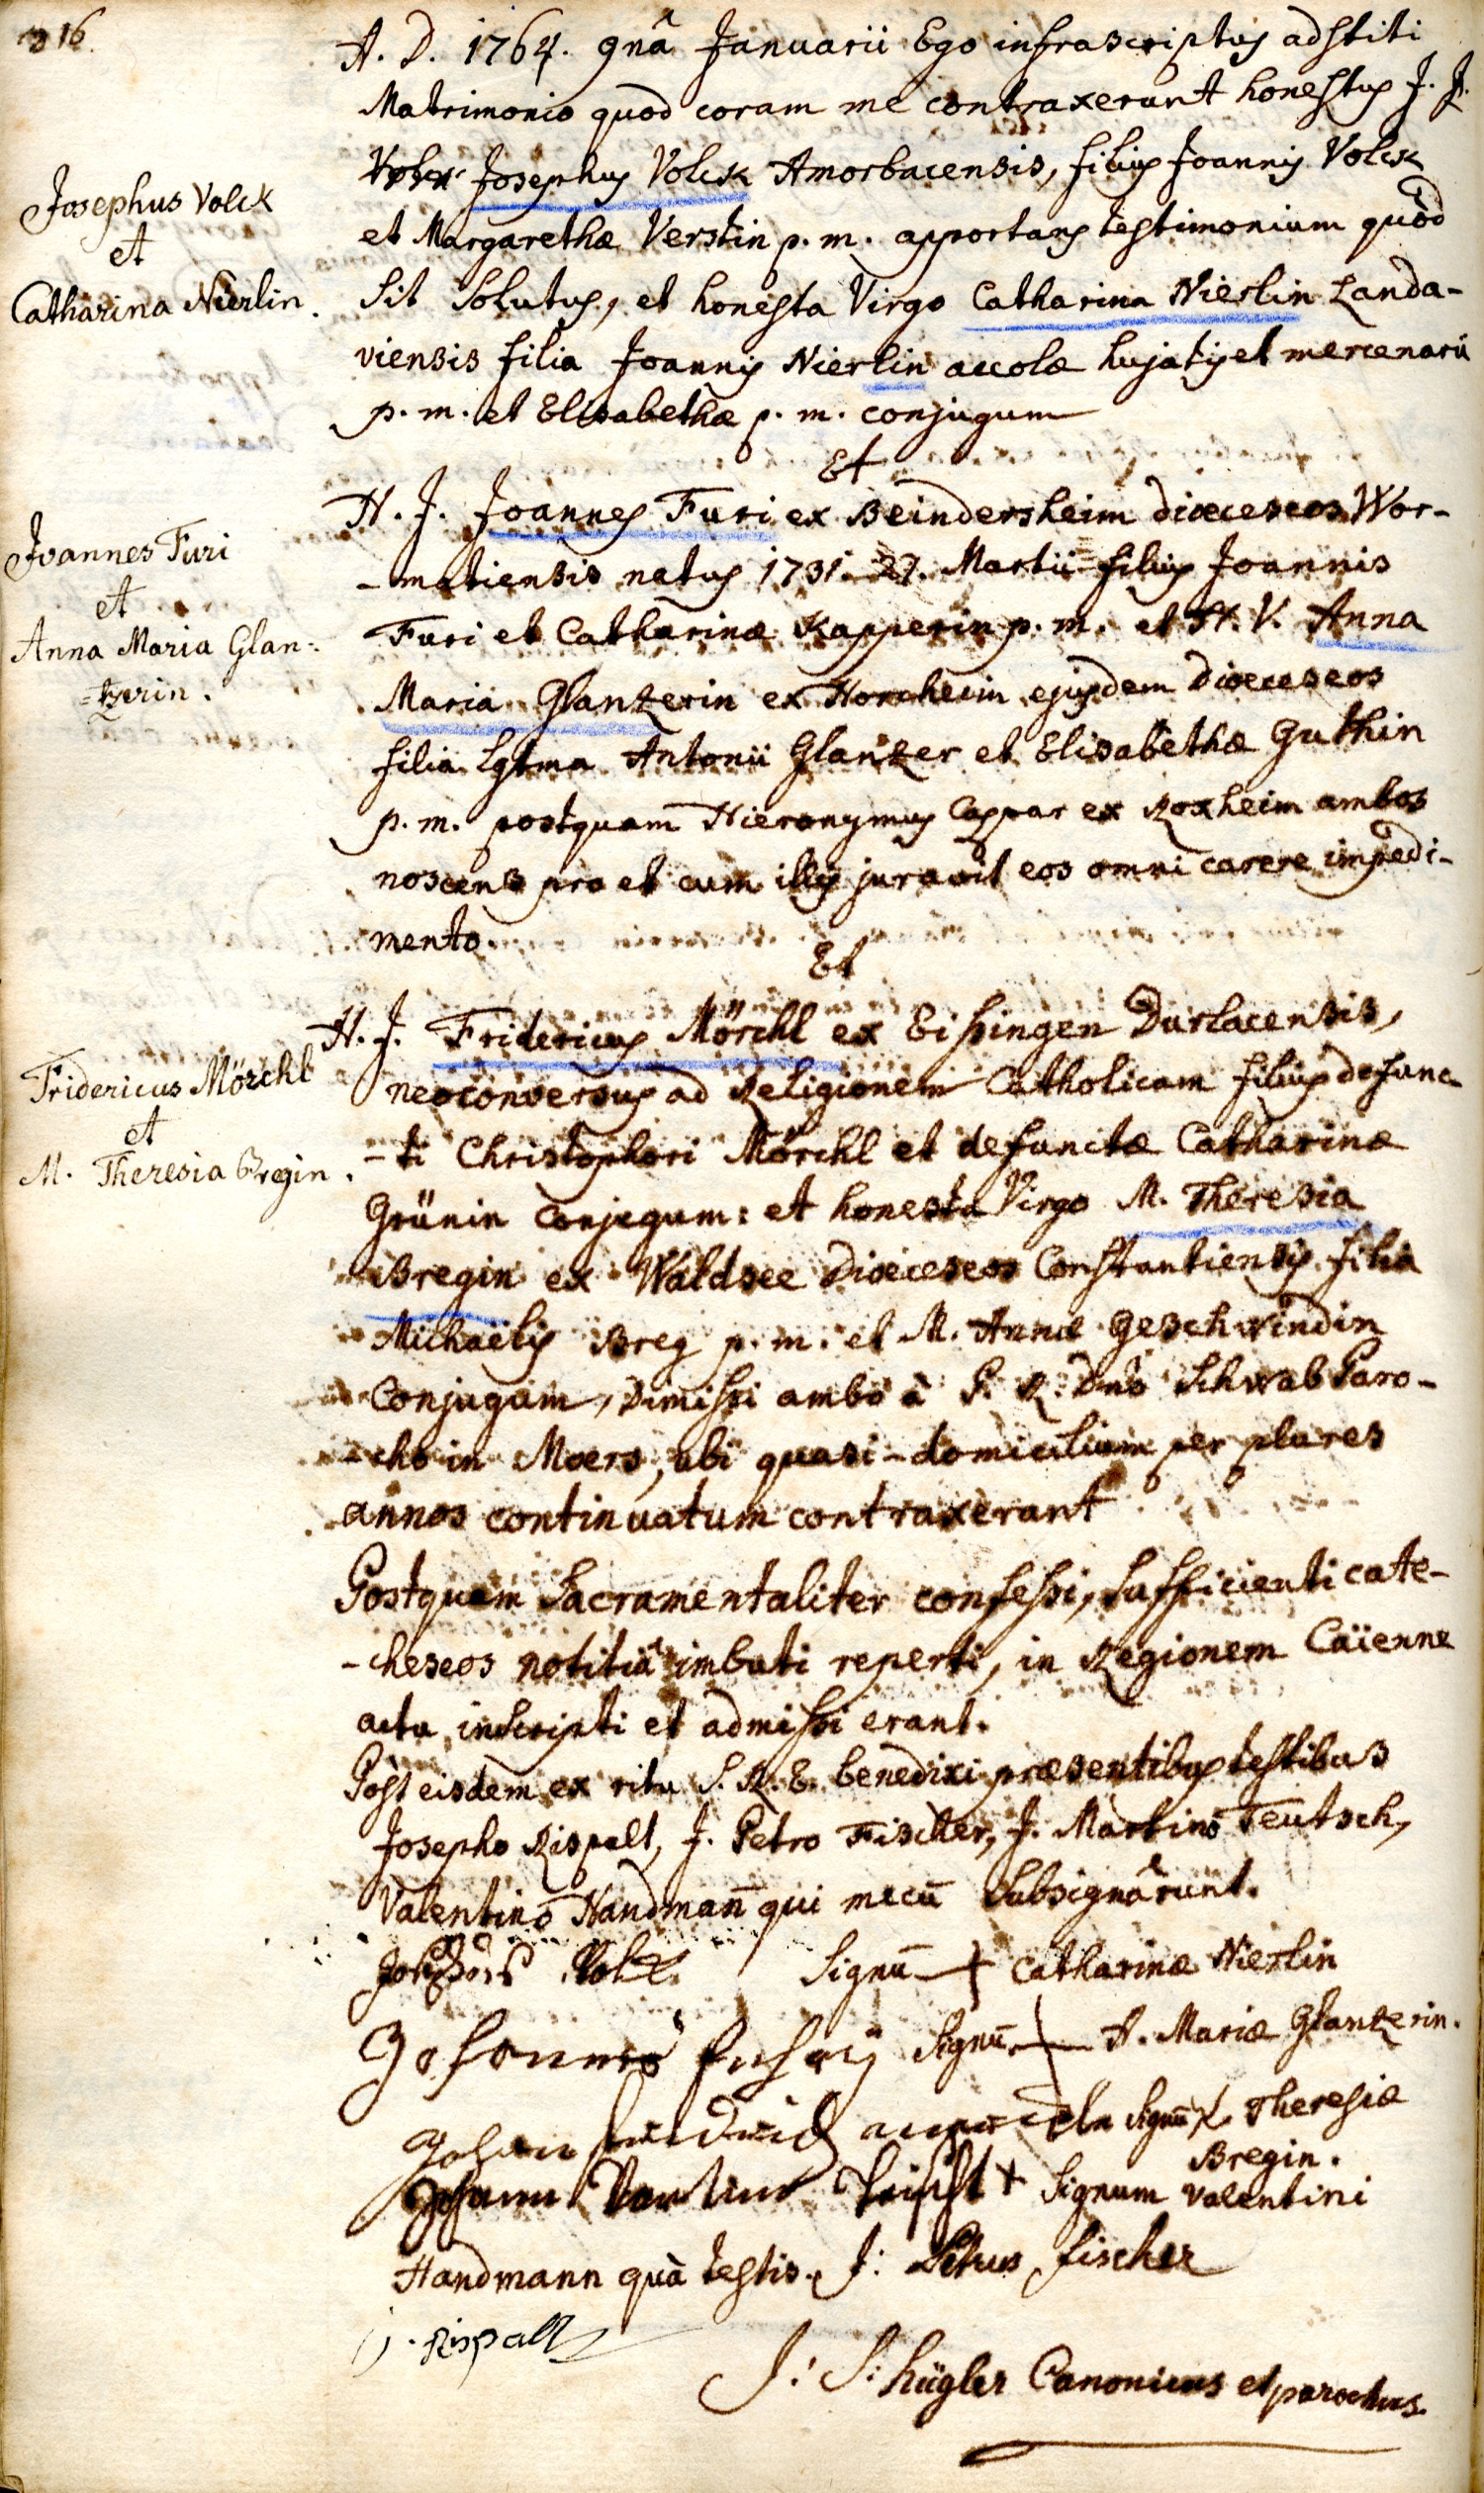 216.
A. D. 1764. 9nâ Januarii Ego infrascriptus adstiti
Matrimonio quod coram me contraxerunt honestus J. J.
Josephus Volck Amorbacensis, filius Joannis Volck
et Margarethæ Verstin p. m. apportans testimonium quòd
sit solutus, et honesta Virgo Catharina Nierlin Landa-
viensis filia Joannis Nierlin accolæ hujatis et mercenarii
p. m. et Elisabethæ p. m. conjugum
Josephus Volck
et
Catharina Nierlin.
Et
H. J. Joannes Furi ex Beindersheim diœceseos Wor-
-matiensis natus 1731. 27. Martii filius Joannis
Furi et Catharinæ Kapperin p. m. et H. V. Anna
Maria Glantzerin ex Horcheim ejusdem Diœceseos
filia Lgtma Antonii Glantzer et Elisabethæ Guthin
p. m. postquam Hieronymus Caspar ex Roxheim ambos
noscens pro et cum illis juravit eos omni carere impedi-
mento.
Joannes Furi
et
Anna Maria Glan-
-tzerin.
Et
H. J. Fridericus Mörchl ex Eißingen Durlacensis,
neoconversus ad Religionem Catholicam filius defunc-
-ti Christophori Mörchl et defunctæ Catharinæ
Grünin Conjugum: et honesta Virgo M. Theresia
Bregin ex Waldsee Diœceseos Constantiensis filia
Michaëlis Breg p. m. et M. Annæ Geschwindin
Conjugum, Dimissi ambo à P. R. Dnō Schwab Paro-
-cho in Moers, ubi quasi-domicilium per plures
annos continuatum contraxerant
Fridericus Mörchl
et
M. Theresia Bregin.
Postquam Sacramentaliter confessi, sufficienti cate-
-cheseos notitiâ imbuti reperti, in Regionem Caïenne
actu inscripti et admissi erant.
Post eisdem ex ritu S. R. E. benedixi præsentibus testibus
Josepho Rispalt, J. Petro Fischer, J. Martino Teutsch,
Valentino Handmañ qui mecū subsignârunt.
Volk. Signū + Catharinæ Nierlin
Johannes Signū + A. Mariæ Glantzerin.
Johan Signū X Theresiæ
Bregin.
Johann + Signum Valentini
Handmann quà testis. J: Petrus Fischer
J. Rispalt
J: S: hügler Canonicus et parochus.